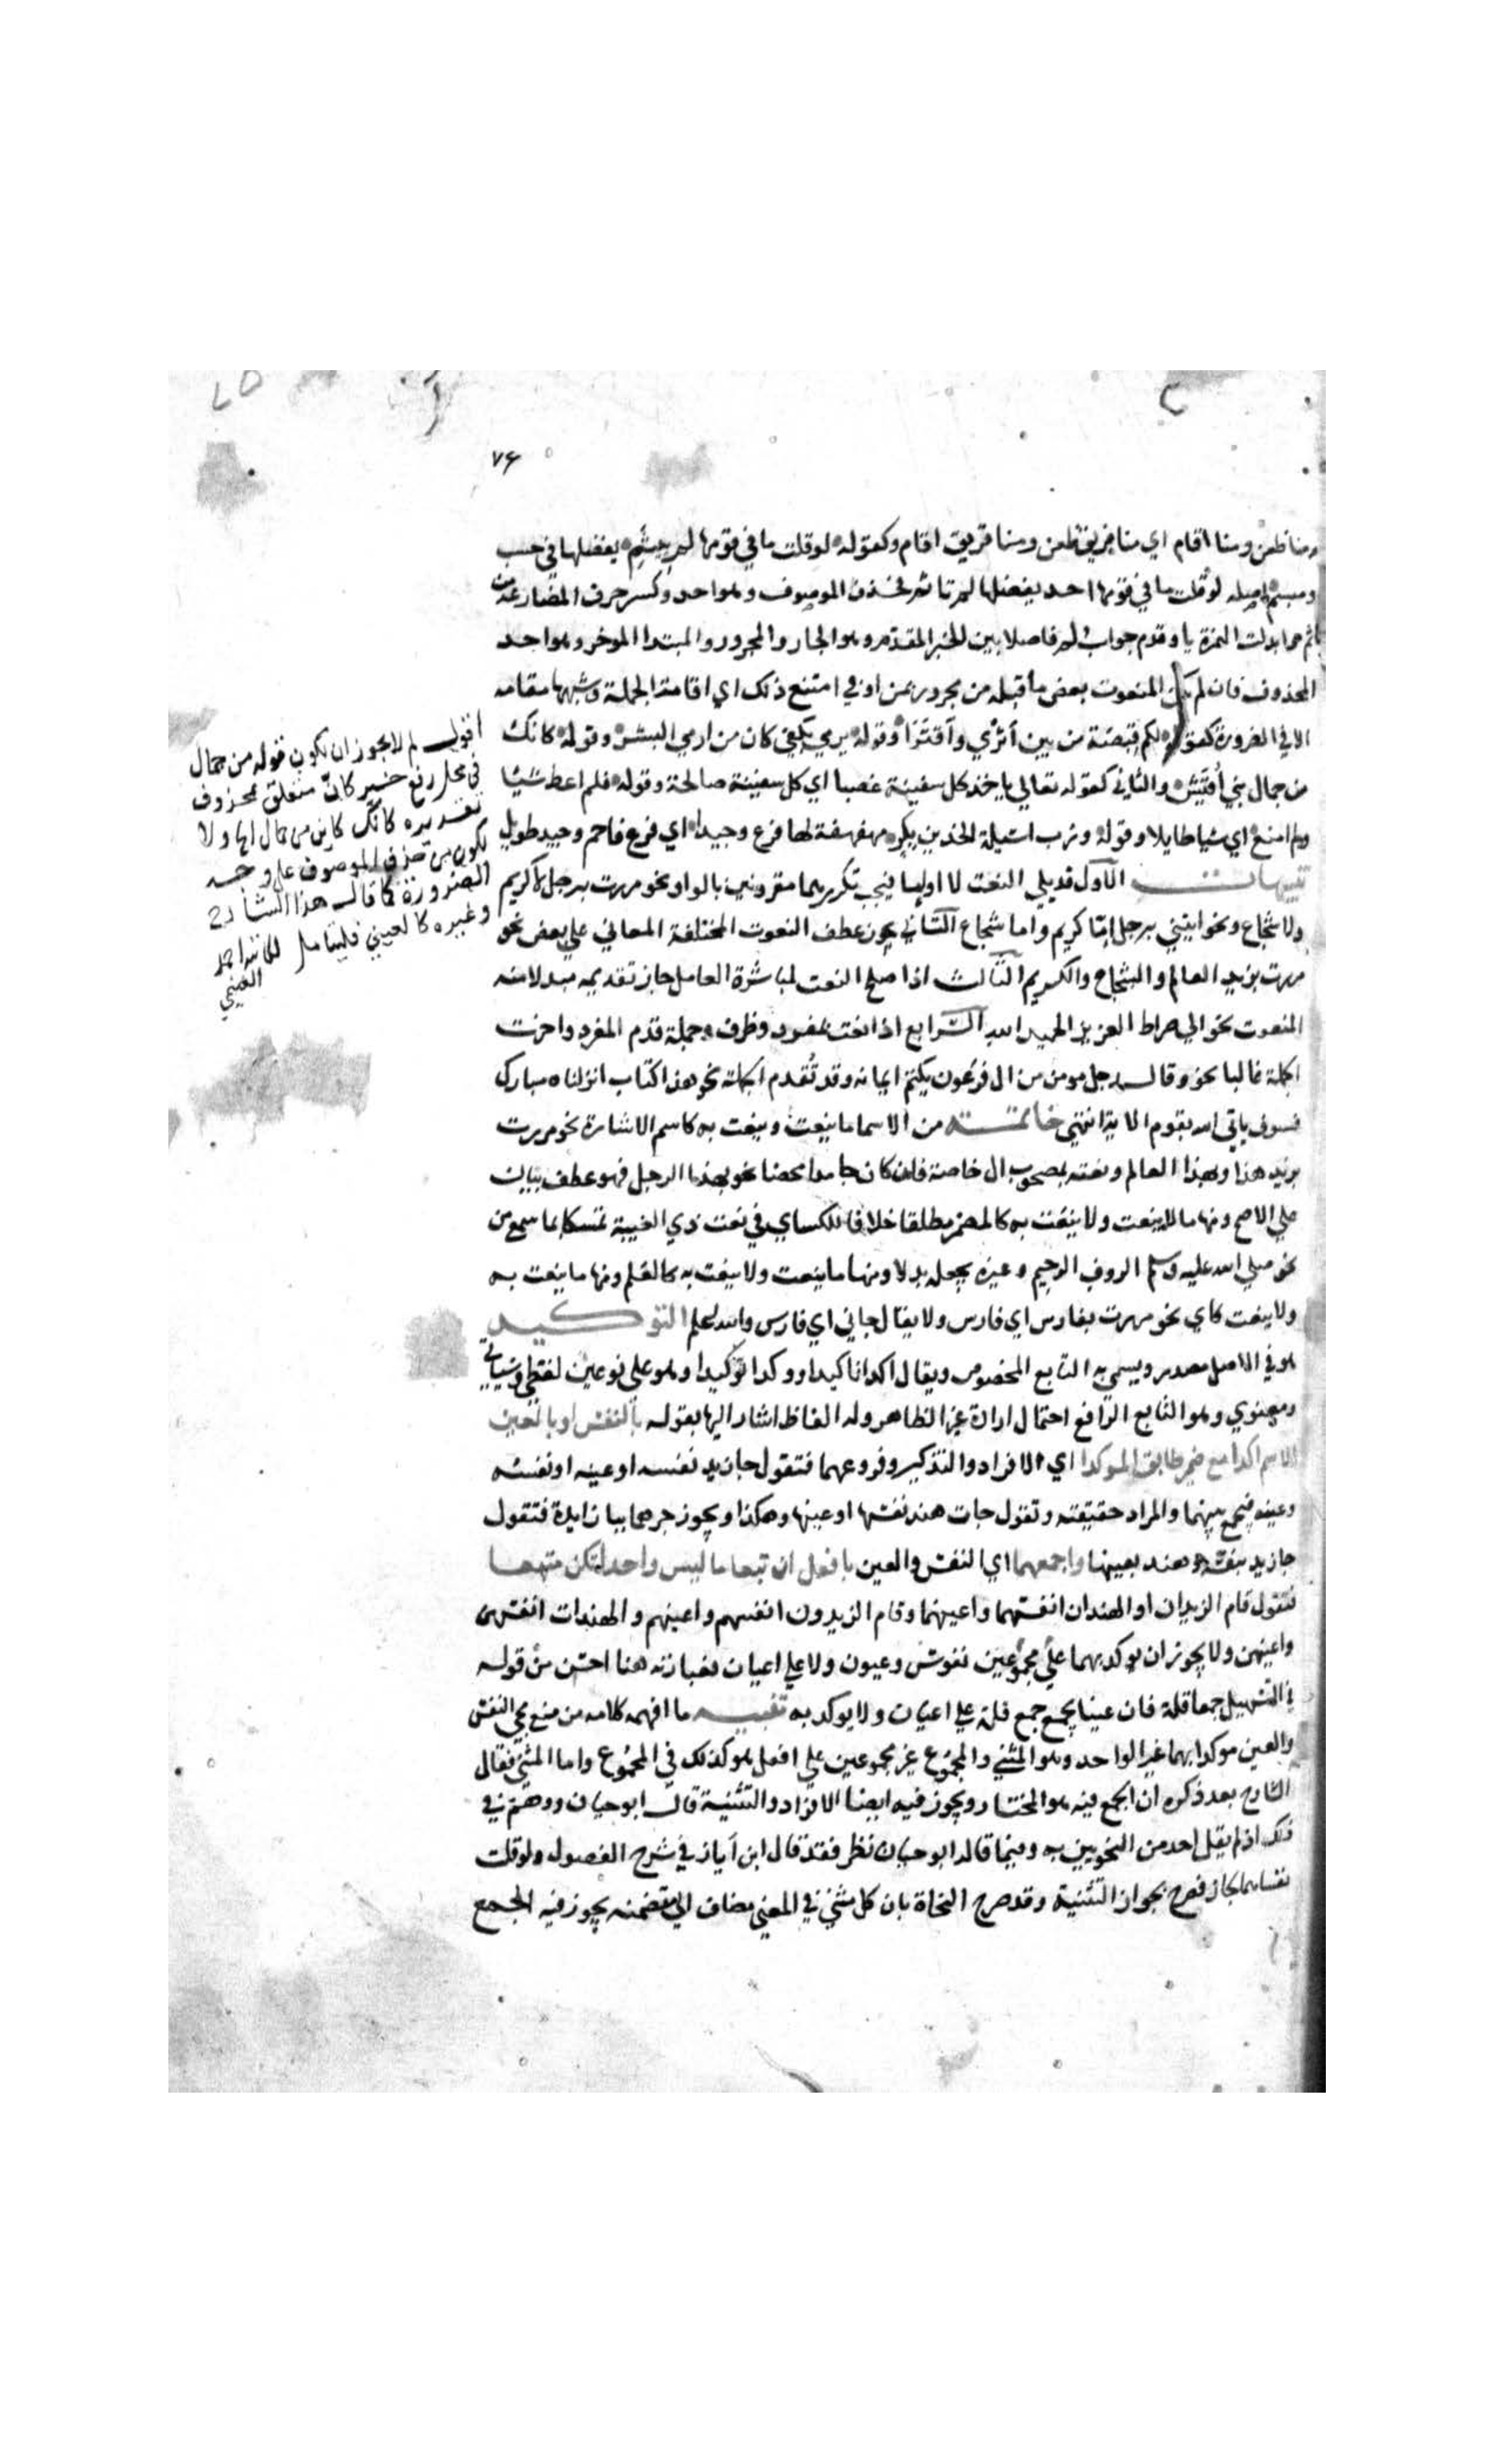 ٧٤
منا ظعن ومنا اقام اي منا فريق ظعن ومنا فريق اقام وكقوله لو قلت ما في قومها لم تيثم يفضلها في حسب
وميسم اصله لو قلت ما في قومها احد يفضلها لم تاثم فحذف الموصوف وهو احد وكسر حرف المضارعة من
تاثم وابدلت الهمزة يا وقدم جواب لو فاصلا بين الخبر المقدم وهو الجار والمجرور والمبتدا الموخر وهو احد
المحذوف فان لم يكن المنعوت بعض ما قبله من مجرور بمن او في امتنع ذلك اي اقامة الجملة وشبهها مقامه
الا في الضرورة كقوله لكم قبصة من بين أثري وأقترا وقوله يرمي بكفي كان من ارمي البشر وقوله كانك
من جمال بني أقيش والثاني كقوله تعالي ياخذ كل سفينة غصبا اي كل سفينة صالحة وقوله فلم اعط شيئا
ولم امنع اي شيا طايلا وقوله ورب اسيلة الخدين بكر مهفهفة لها فرع وجيد اي فرع فاحم وجيد طويل
تنبيهات الاول قد يلي النعت لا او اما فيجب تكريرهما مقرونين بالواو نحو مررت برجل لا كريم
ولا شجاع ونحو ايتيني برجل امّا كريم واما شجاع الثاني يجوز عطف النعوت المختلفة المعاني علي بعض نحو
مررت بزيد العالم والشجاع والكريم الثالث اذا صلح النعت لمباشرة العامل جاز تقديمه مبدلا منه
المنعوت نحو الي صراط العزيز الحميد الله الرابع اذا نعت بمفرد وظرف وجملة قدم المفرد واخرت
الجملة غالبا نحو وقال رجل مومن من ال فرعون يكتم ايمانه وقد تُقدم الجملة نحو هذا كتاب انزلناه مبارك
فسوف ياتي الله بقوم الاية انتهي خاتمة من الاسما ما ينعت وينعت به كاسم الاشارة نحو مررت
بزيد هذا وبهذا العالم ونعته بمصحوب ال خاصة فان كان جامدا محضا نحو بهذا الرجل فهو عطف بيان
علي الاصح ومنها ما لا ينعت ولا ينعت به كالمضمر مطلقا خلافا للكساي في نعت ذي الغيبة تمسكا بما سمع من
نحو صلي الله عليه وسلم الروف الرحيم وغيره يجعله بدلا ومنها ما ينعت ولا ينعت به كالعلم ومنها ما ينعت به
ولا ينعت كاي نحو مررت بفارس اي فارس ولا يقال جاني اي فارس والله اعلم التوكيد
هو في الاصل مصدر ويسمي به التابع المخصوص ويقال اكد تاكيدا ووكد توكيدا وهو علي نوعين لفظي وسياتي
ومعنوي وهو التابع الرافع احتمال ارادة غير الظاهر وله الفاظ اشار اليها بقوله بالنفس او بالعين
الاسم اكدا مع ضمير طابق الموكدا اي الافراد والتذكير وفروعهما فتقول جا زيد نفسه او عينه او نفسه
وعينه فتجمع بينهما والمراد حقيقته وتقول جات هند نفسها او عينها وهكذا ويجوز جرهما ببا زايدة فتقول
جا زيد بنفسه وهند بعينها واجمعهما اي النفس والعين بافعل ان تبعا ما ليس واحدا تكن متبعا
فتقول قام الزيدان او الهندان انفسهما واعينهما وقام الزيدون انفسهم واعينهم والهندات انفسهن
واعينهن ولا يجوز ان يوكد بهما مجموعين علي نفوس وعيون ولا علي اعيان فعبارته هنا احسن من قوله
في التسهيل جمع قلة فان عينا يجمع جمع قلة علي اعيان ولا يوكد به تنبيه ما افهمه كلامه من منع مجي النفس
والعين موكدا بهما غير الواحد وهو المثني والمجموع غير مجموعين علي افعل هو كذلك في المجموع واما المثني فقال
الشارح بعد ذكره ان الجمع فيه هو المختار ويجوز فيه ايضا الافراد والتثنية قال ابو حيان ووهم في
ذلك اذ لم يقل احد من النحويين به وفيما قاله ابو حيان نظر فقد قال ابن اياز في شرح الفصول ولو قلت
نفساهما لجاز فصرح بجواز التثنية وقد صرح النحاة بان كل مثني في المعني مضاف الي متضمنه يجوز فيه الجمع
اقول لم لا يجوز ان يكون قوله من جمال
في محل رفع خبر كان متعلق بمحذوف
تقديره كانك كاين من جمال الخ ولا
يكون من حذف الموصوف علي وجه
الضرورة كما قال هذا الشارح
وغيره كالعيني فليتامل لكاتبه احمد
الغنيمي